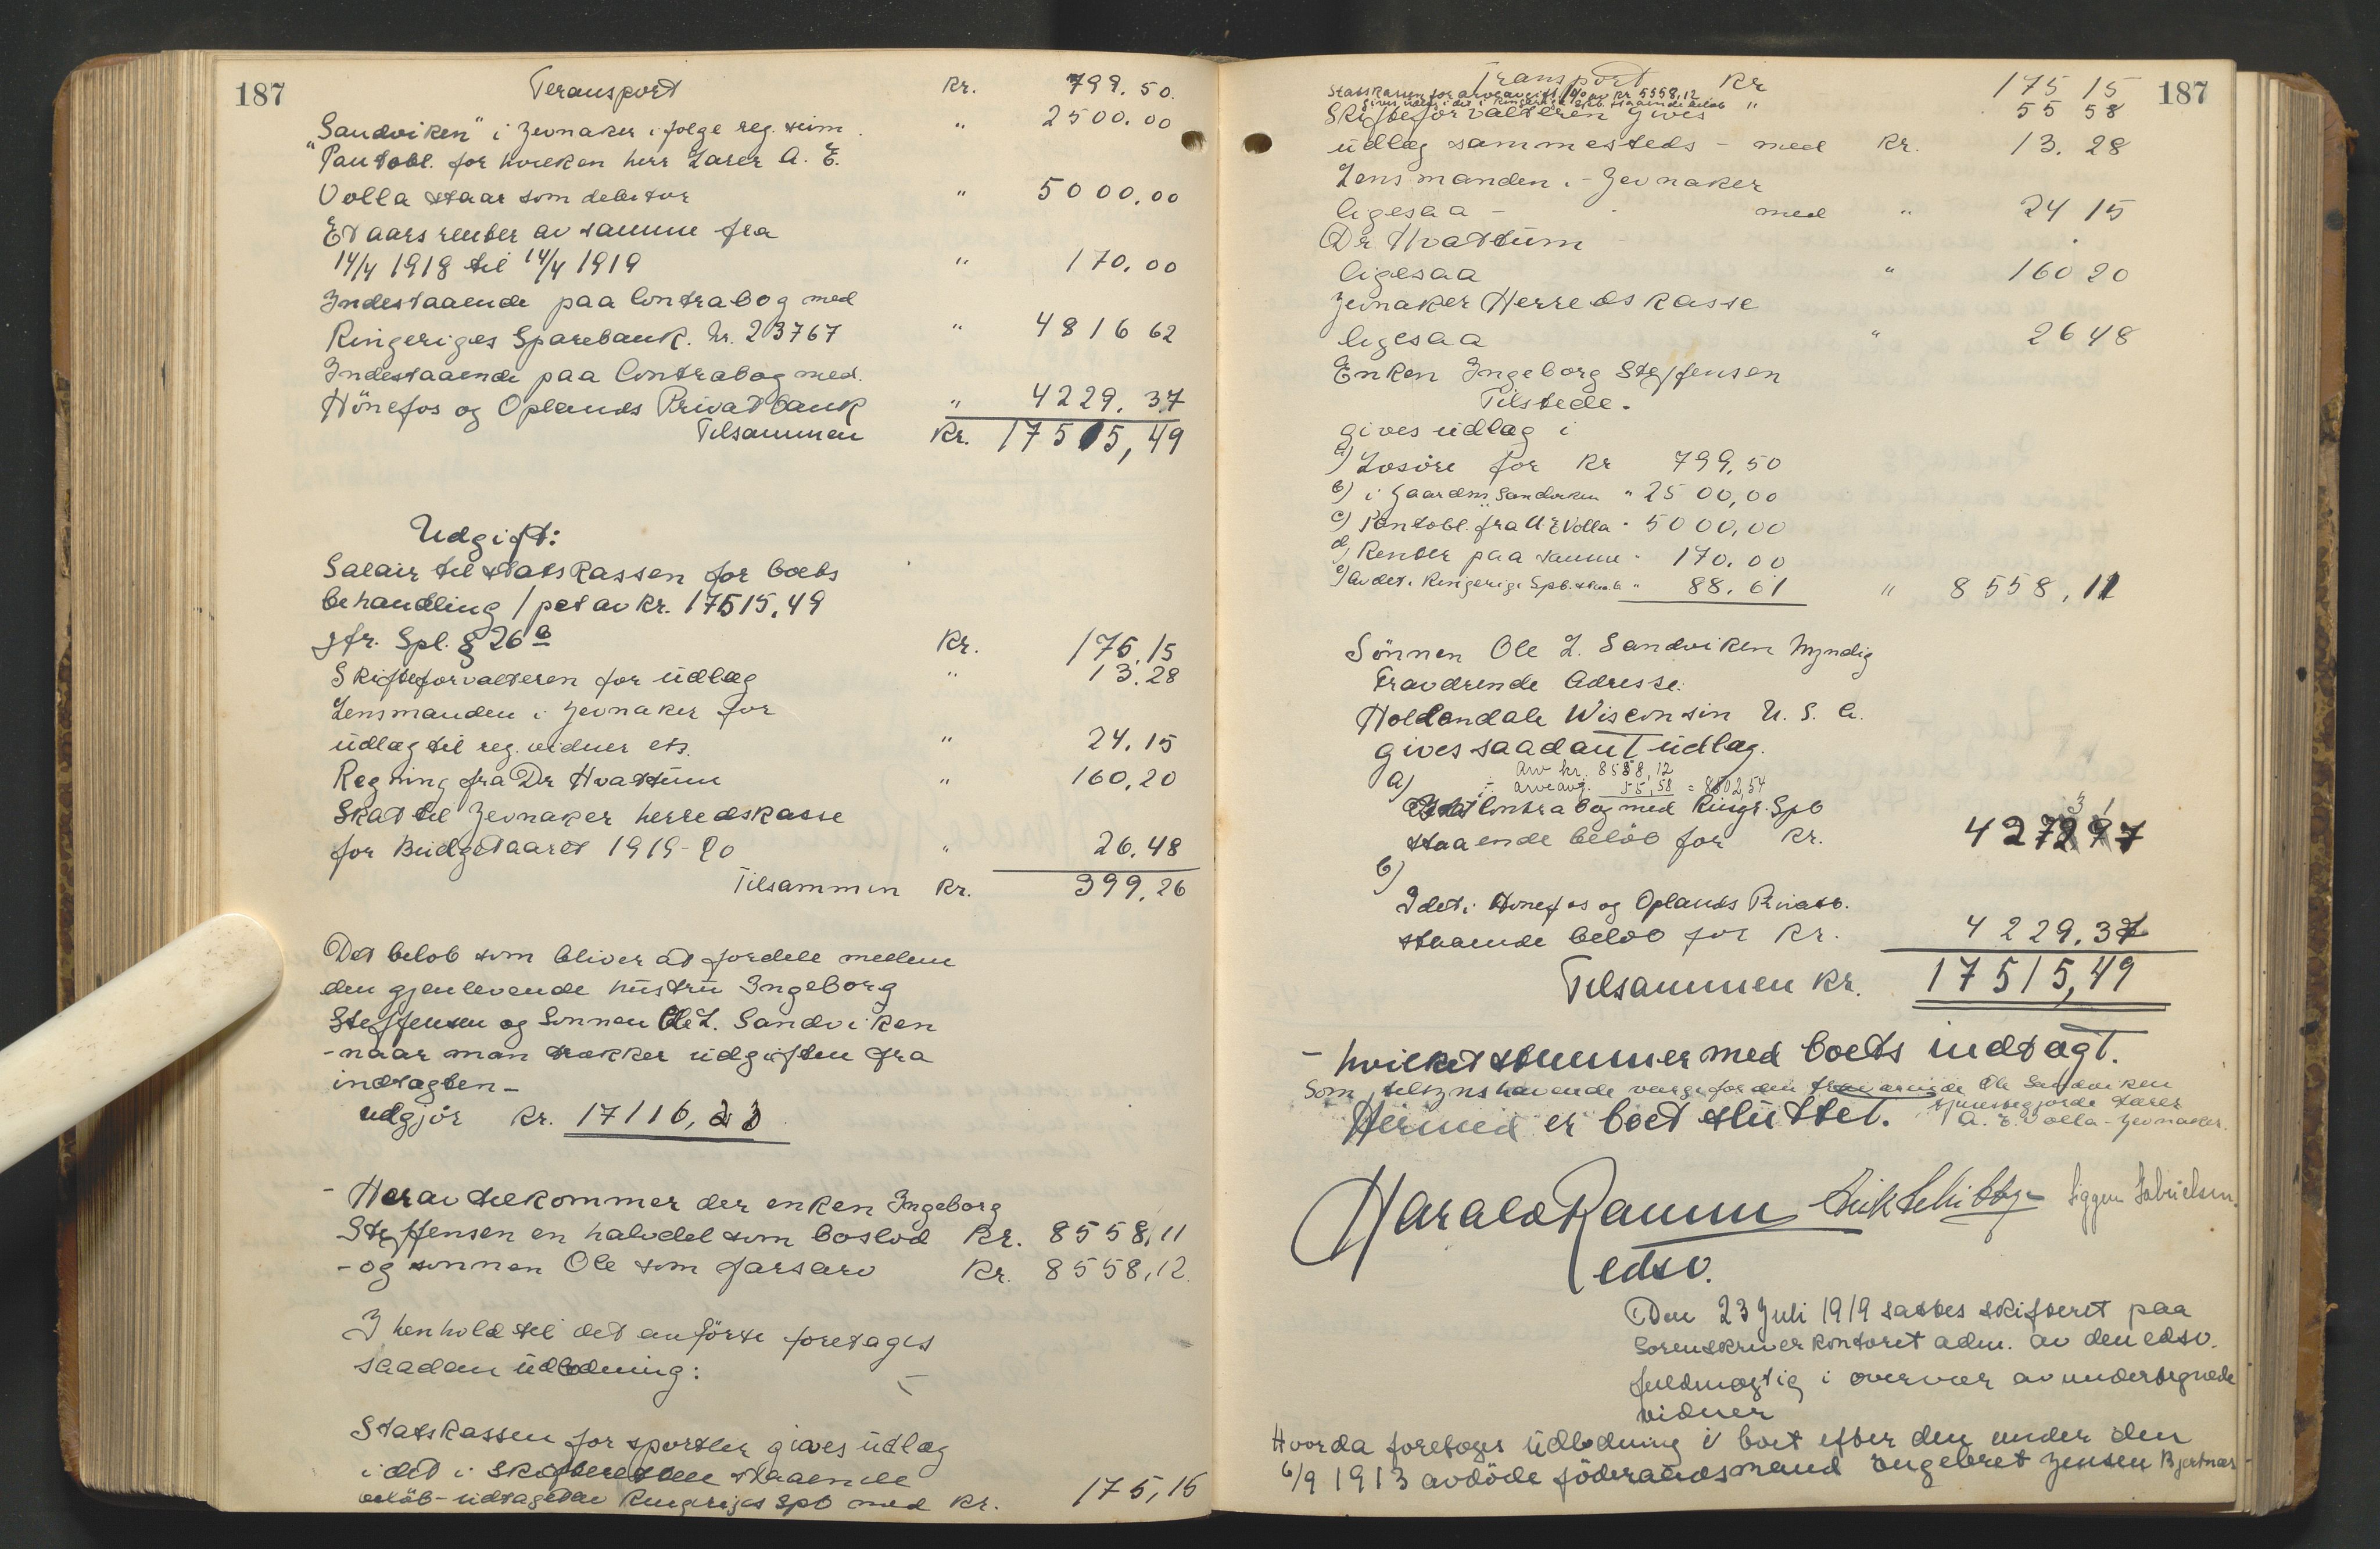 187
Transport kr. 799.50.
"Sandviken" i Jevnaker i følge reg. svim. " 2500.00
Pantobl. for hvilken herr Lærer A. E.
Volla staar som debitor " 5000,00
Et aars renter av samme fra
14/4 1918 til 14/4 1919 " 170.00
Indestaaende paa Contrabog med
Ringeriges Sparebank. Nr. 23767 " 4816 62
Indestaaende paa Contrabog med.
Hönefos og Oplands Privatbank " 4229.37
Tilsammen Kr. 17515,49
Udgift:
Salair til statskassen for boets
behandling 1 pct av kr. 17515.49
jfr. Spl. § 26 b Kr. 175.15
Skifteforvalteren for udlæg " 13.28
Lensmanden i Jevnaker for
udlæg til reg. vidner ets. " 24.15
Regning fra Dr Hvattum " 160,20
Skat til Jevnaker herredskasse
for Budgetaaret 1919-20 " 26.48
Tilsammen kr. 399.26
Det beløb som bliver at fordele mellem
den gjenlevende hustru Ingeborg
Steffensen og Sønnen Ole L. Sandviken
-naar man trækker udgiften fra
indtægten-
udgjör kr. 17116,23
- Herav tilkommer der enken Ingeborg
Steffensen en halvdel som boslod kr. 8558,11
-og sønnen Ole som farsarv kr. 8558,12.
I henhold til det anförte foretages
saadan udlodning:
Statskassen for sportler gives udlæg
i det i Skifteretten staaende
beløb-udtaget av Ringeriges Spb med kr. 175,15
187
Transport Kr 175 15
Statskassen for arveavgift 1% av kr 5558,12
gives udlæg i det i Ringeriges Spb. staaende beløb " 55 58
Skifteforvalteren gives
udlæg sammesteds - med kr. 13.28
Lensmanden i Jevnaker
ligesaa - med " 24 15
Dr Hvattum
ligesaa " 160 20
Jevnaker Herredskasse
ligesaa " 26 48
Enken Ingeborg Steffensen
Tilstede.
gives udlæg i
a) Losöre for Kr 799.50
b) i Gaarden Sandviken " 2500,00
c) Pantobl. fra A. E Volla " 5000,00
d) Renter paa samme " 170.00
e) Av det i Ringerige Spb. staa.b " 88.61 " 8558,11
Sönnen Ole L. Sandviken Myndig
Fraværende Adresse:
Holdendale Wisconsin U. S. A.
gives saadant udlæg.
a) Arv kr. 8558,12
÷ arveavg. 55,58 = 8502,54
I det Contrabog med Ringr. Spb
staaende beløb for Kr. 427297 3 1
b)
I det i Hønefos og Oplands Privatb.
staaende beløb for Kr. 4229.37
Tilsammen kr. 17515,49
- hvilket stemmer med boets indtægt.
Som tilsynshavende verge for den fraværende Ole Sandviken
tjenestegjorde Lærer
A. E. Volla - Jevnaker.
Hermed er boet sluttet.
Harald Ramm Erik Schibbye Siggen Gabrielsen.
edsv.
Den 23 Juli 1919 sattes skifteret paa
Sorenskriverkontoret adm. av den edsv.
fuldmægtig i overvær av undertegnede
vidner
Hvorda foretoges Udlodning i boet efter den under den
6/9 1913 avdöde föderaadsmand Engebret Jensen Bjertnæs-